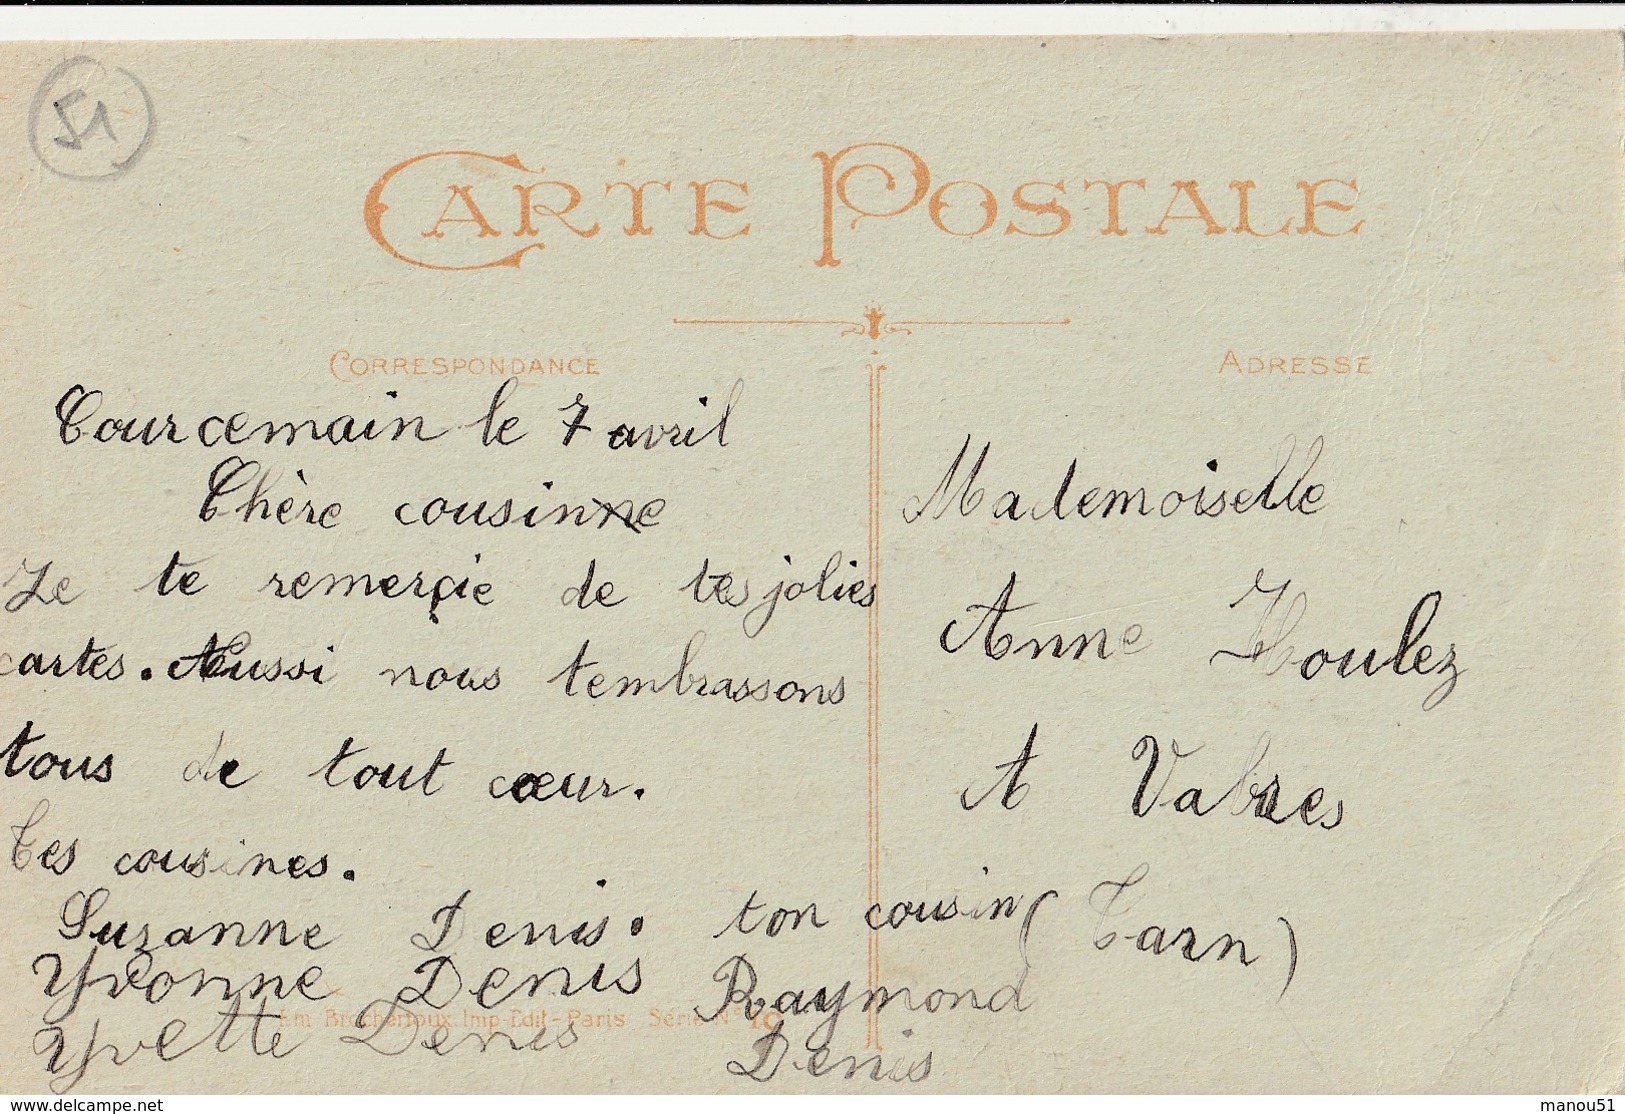 51
CARTE POSTALE
CORRESPONDANCE
ADRESSE
Courcemain le 7 avril
Chère cousinne
Je te remerçie de tes jolies
cartes. Aussi nous tembrassons
tous de tout cœur.
Tes cousines.
Suzanne Denis. ton cousin
Yvonne Denis Raymond
Yvette Denis Denis
Mademoiselle
Anne Houlez
A Vabres
(Tarn)
Imp-Edit-Paris Série N°
www.delcampe.net
manou51